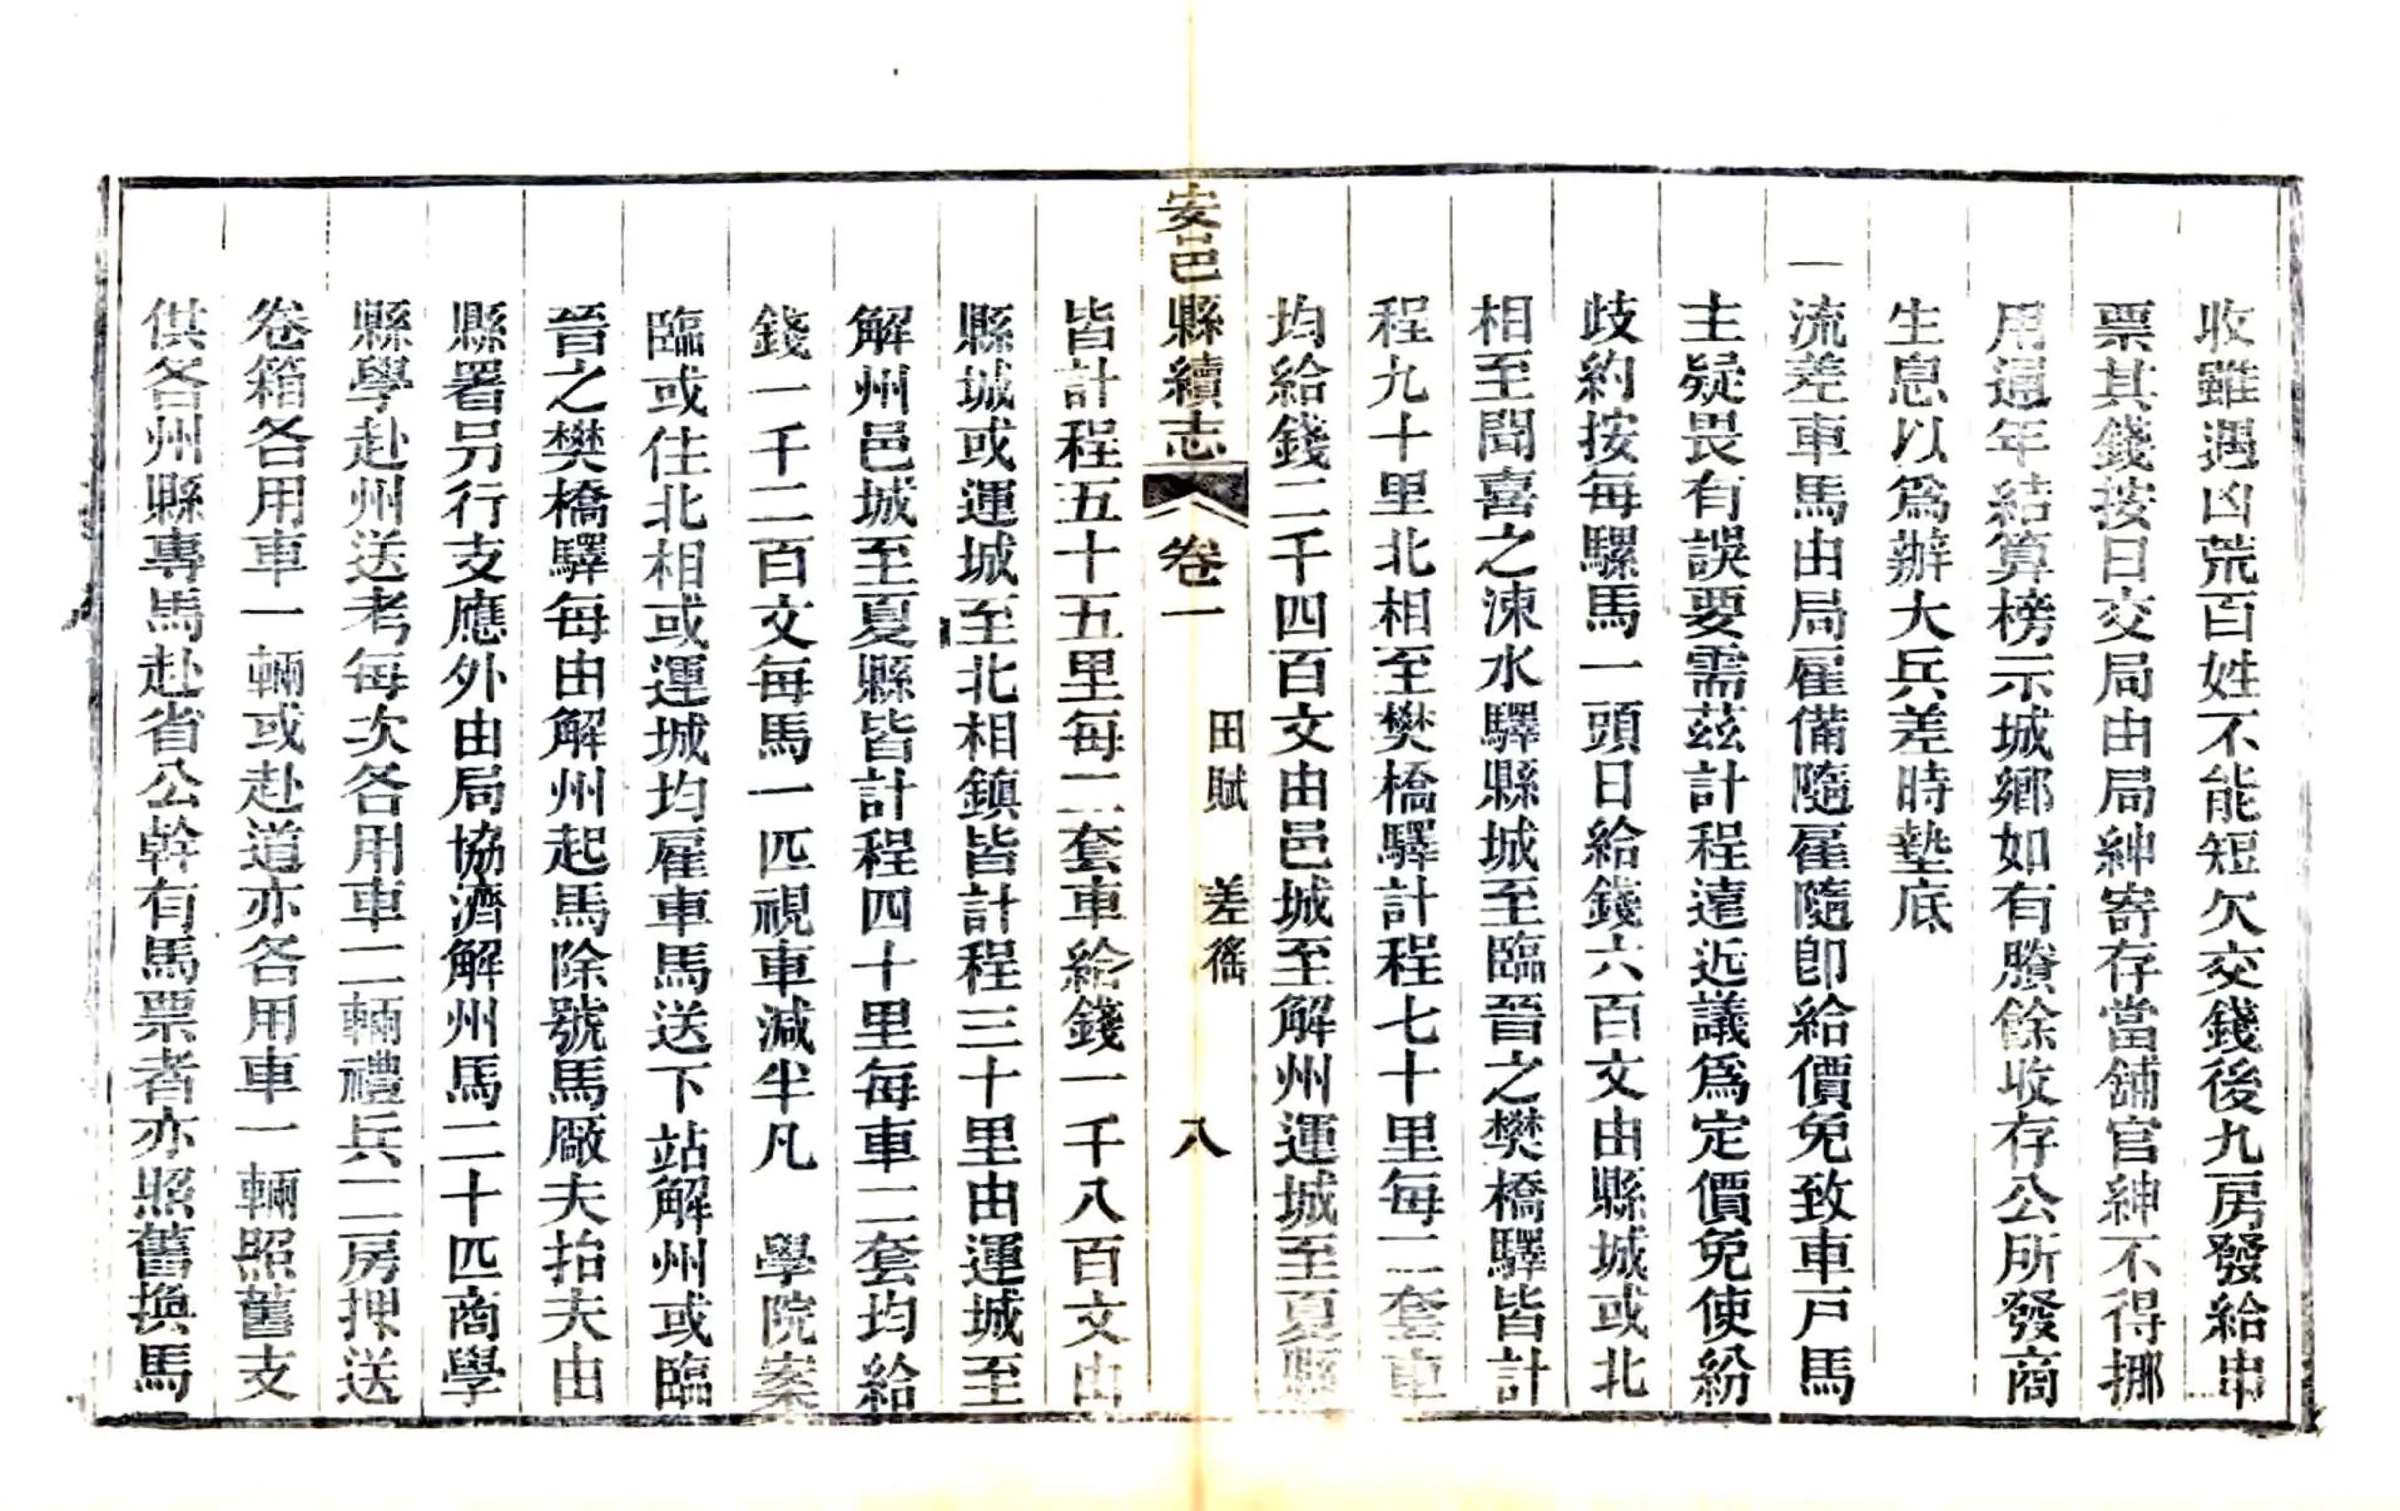 收雖遇凶荒百姓不能短欠交錢後九房發給串
票其錢按日交局由局紳寄存當舖官紳不得挪
用週年結算榜示城鄉如有賸餘收存公所發商
生息以爲辦大兵差時墊底
一流差車馬由局雇備隨雇隨卽給價免致車戸馬
主疑畏有誤要需茲計程遠近議爲定價免使紛
歧約按每騾馬一頭日給錢六百文由縣城或北
相至聞喜之涑水驛縣城至臨晉之樊橋驛皆計
程九十里北相至樊橋驛計程七十里每二套車
均給錢二千四百文由邑城至解州運城至夏縣
安邑縣續志 卷一 田賦 差徭 八
皆計程五十五里每二套車給錢一千八百文由
縣城或運城至北相鎮皆計程三十里由運城至
解州邑城至夏縣皆計程四十里每車二套均給
錢一千二百文每馬一匹視車減半凡 學院案
臨或住北相或運城均雇車馬送下站解州或臨
晉之樊橋驛每由解州起馬除號馬廠夫抬夫由
縣署另行支應外由局協濟解州馬二十匹商學
縣學赴州送考每次各用車二輛禮兵二房押送
卷箱各用車一輛或赴道亦各用車一輛照舊支
供各州縣專馬赴省公幹有馬票者亦照舊換馬